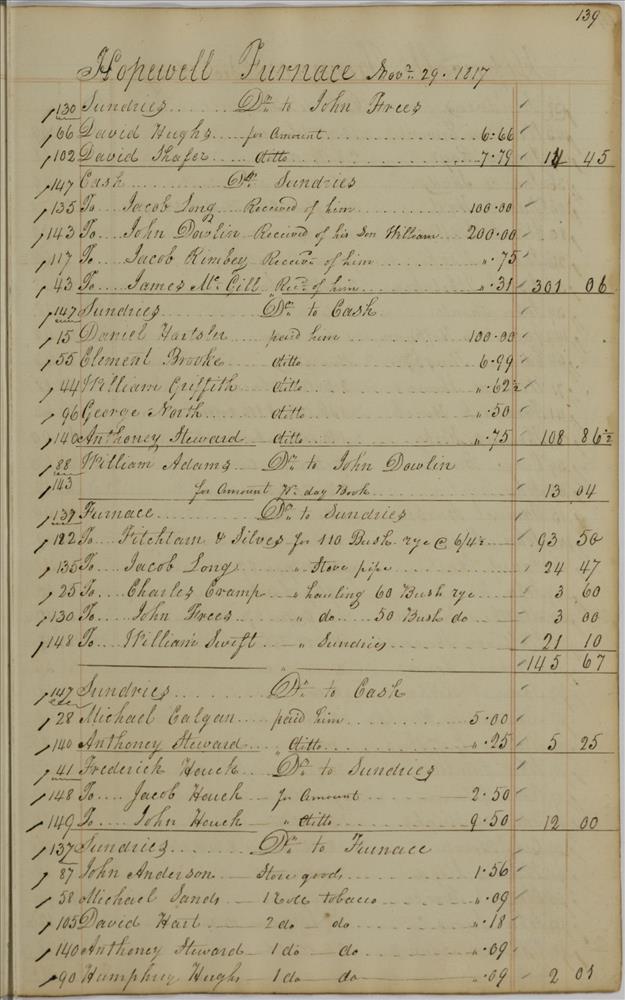 139
Hopewell Furnace Novr. 29. 1817
130 Sundries Dr. to John Frees
66 David Hughs for Amount 6.66
102 David Shafer ditto 7.79 14 45
147 Cash Dr. Sundries
135 To Jacob Long Received of him 100.00
143 To John Dowlin Received of his Son William 200.00
117 To Jacob Kimbey Receivd. of him ".75
43 To James Mc. Gill Recd. of him ".31 301 06
147 Sundries Dr. to Cash
15 Daniel Hartsler paid him 100.00
55 Clement Brooke ditto 6.99
44 William Griffith ditto ".62½
96 George North ditto ".50
140 Anthoney Steward ditto ".75 108 86½
88 William Adams Dr. to John Dowlin
143 for Amount Pr. day Book 13 04
137 Furnace Dr. to Sundries
122 To & Silves for 110 Bush. rye @ 6/4½ 93 50
135 To Jacob Long " Stove pipe 24 47
25 To Charles Cramp " hauling 60 Bush rye 3 60
130 To John Frees " do 50 Bush do 3 00
148 To William Swift " Sundries 21 10
145 67
147 Sundries Dr. to Cash
28 Michael Calgan paid him 5.00
140 Anthoney Steward " ditto ".25 5 25
41 Frederick Houck Dr. to Sundries
148 To Jacob Houck for Amount 2.50
149 To John Houck " ditto 9.50 12 00
137 Sundries Dr. to Furnace
87 John Anderson Store goods 1.56
58 Michael Sands 1 Role tobacco ".09
105 David Hart 2 do do ".18
140 Anthoney Steward 1 do do ".09
90 Humphrey Hughs 1 do do ".09 2 01